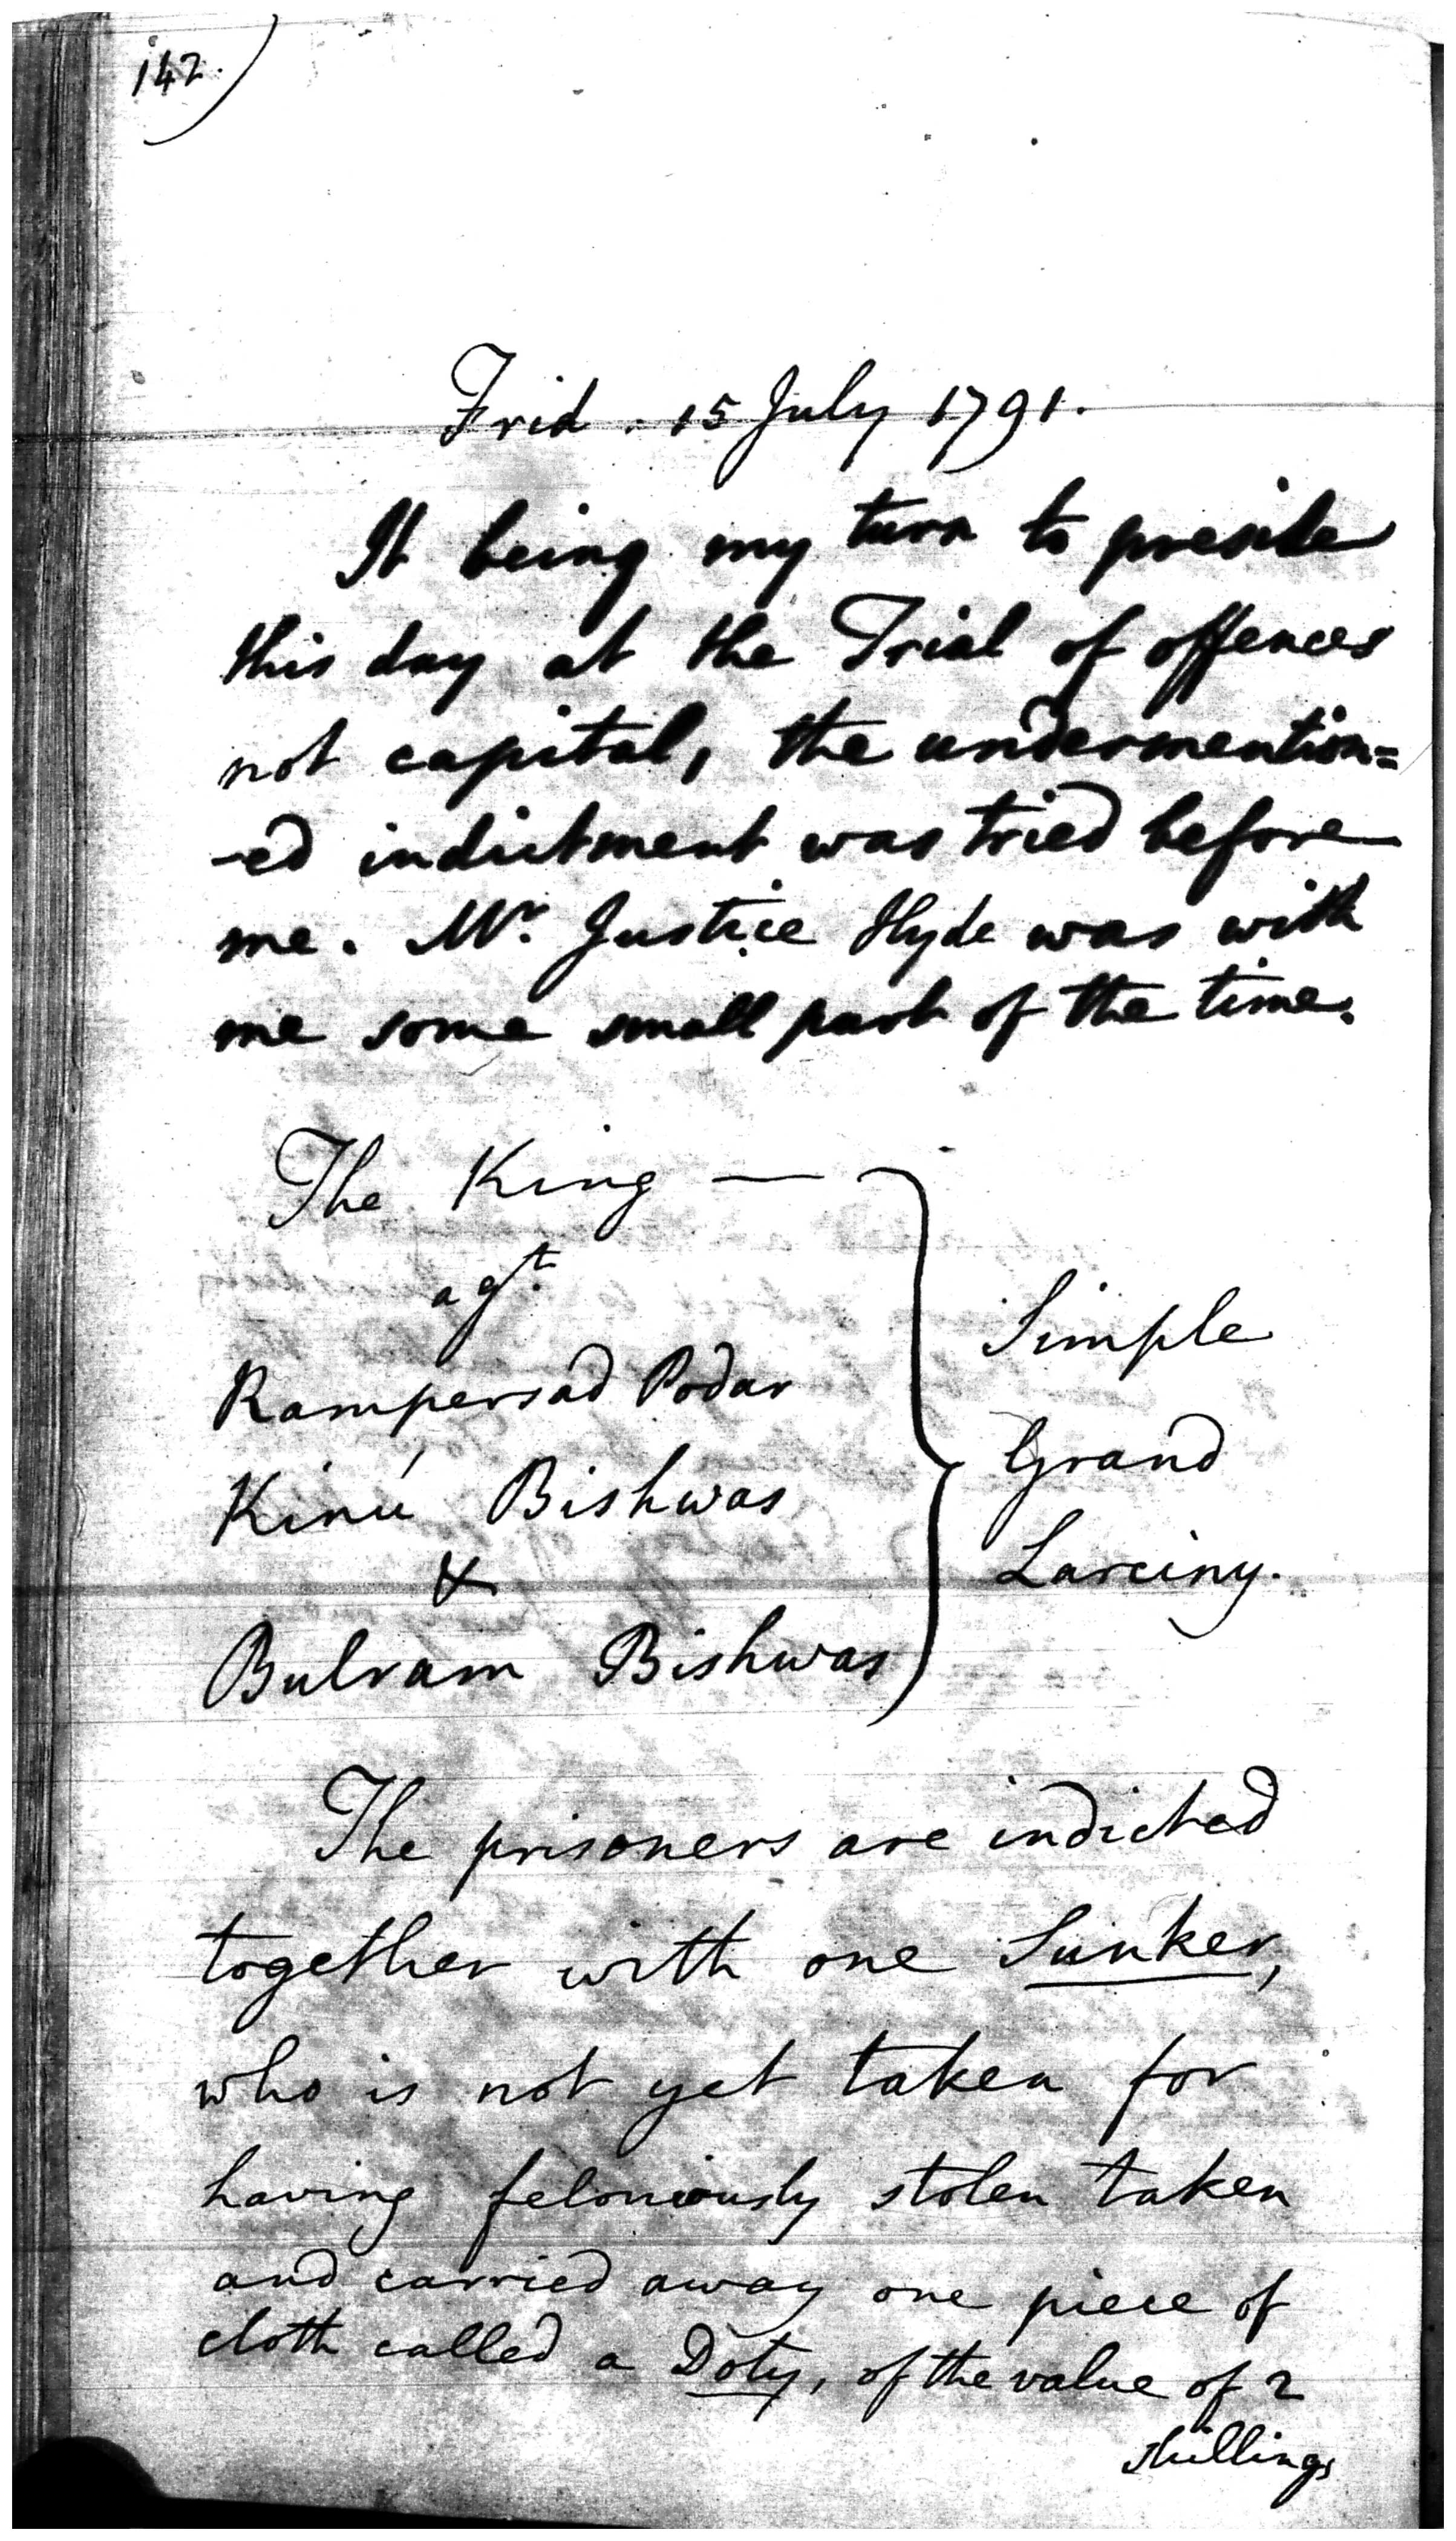 142.)
Frid. 15 July 1791.
It being my turn to preside
this day at the Trial of offences
not capital, the undermention=
-ed indictment was tried before
me. Mr. Justice Hyde was with
me some small part of the time.
The King —
agt.
Rampersad Podar
Kinú Bishwas
&
Bulram Bishwas
Simple
Grand
Larciny.
The prisoners are indicted
together with one Sunker,
who is not yet taken for
having feloniously stolen taken
and carried away one piece of
cloth called a Doty, of the value of 2
shillings